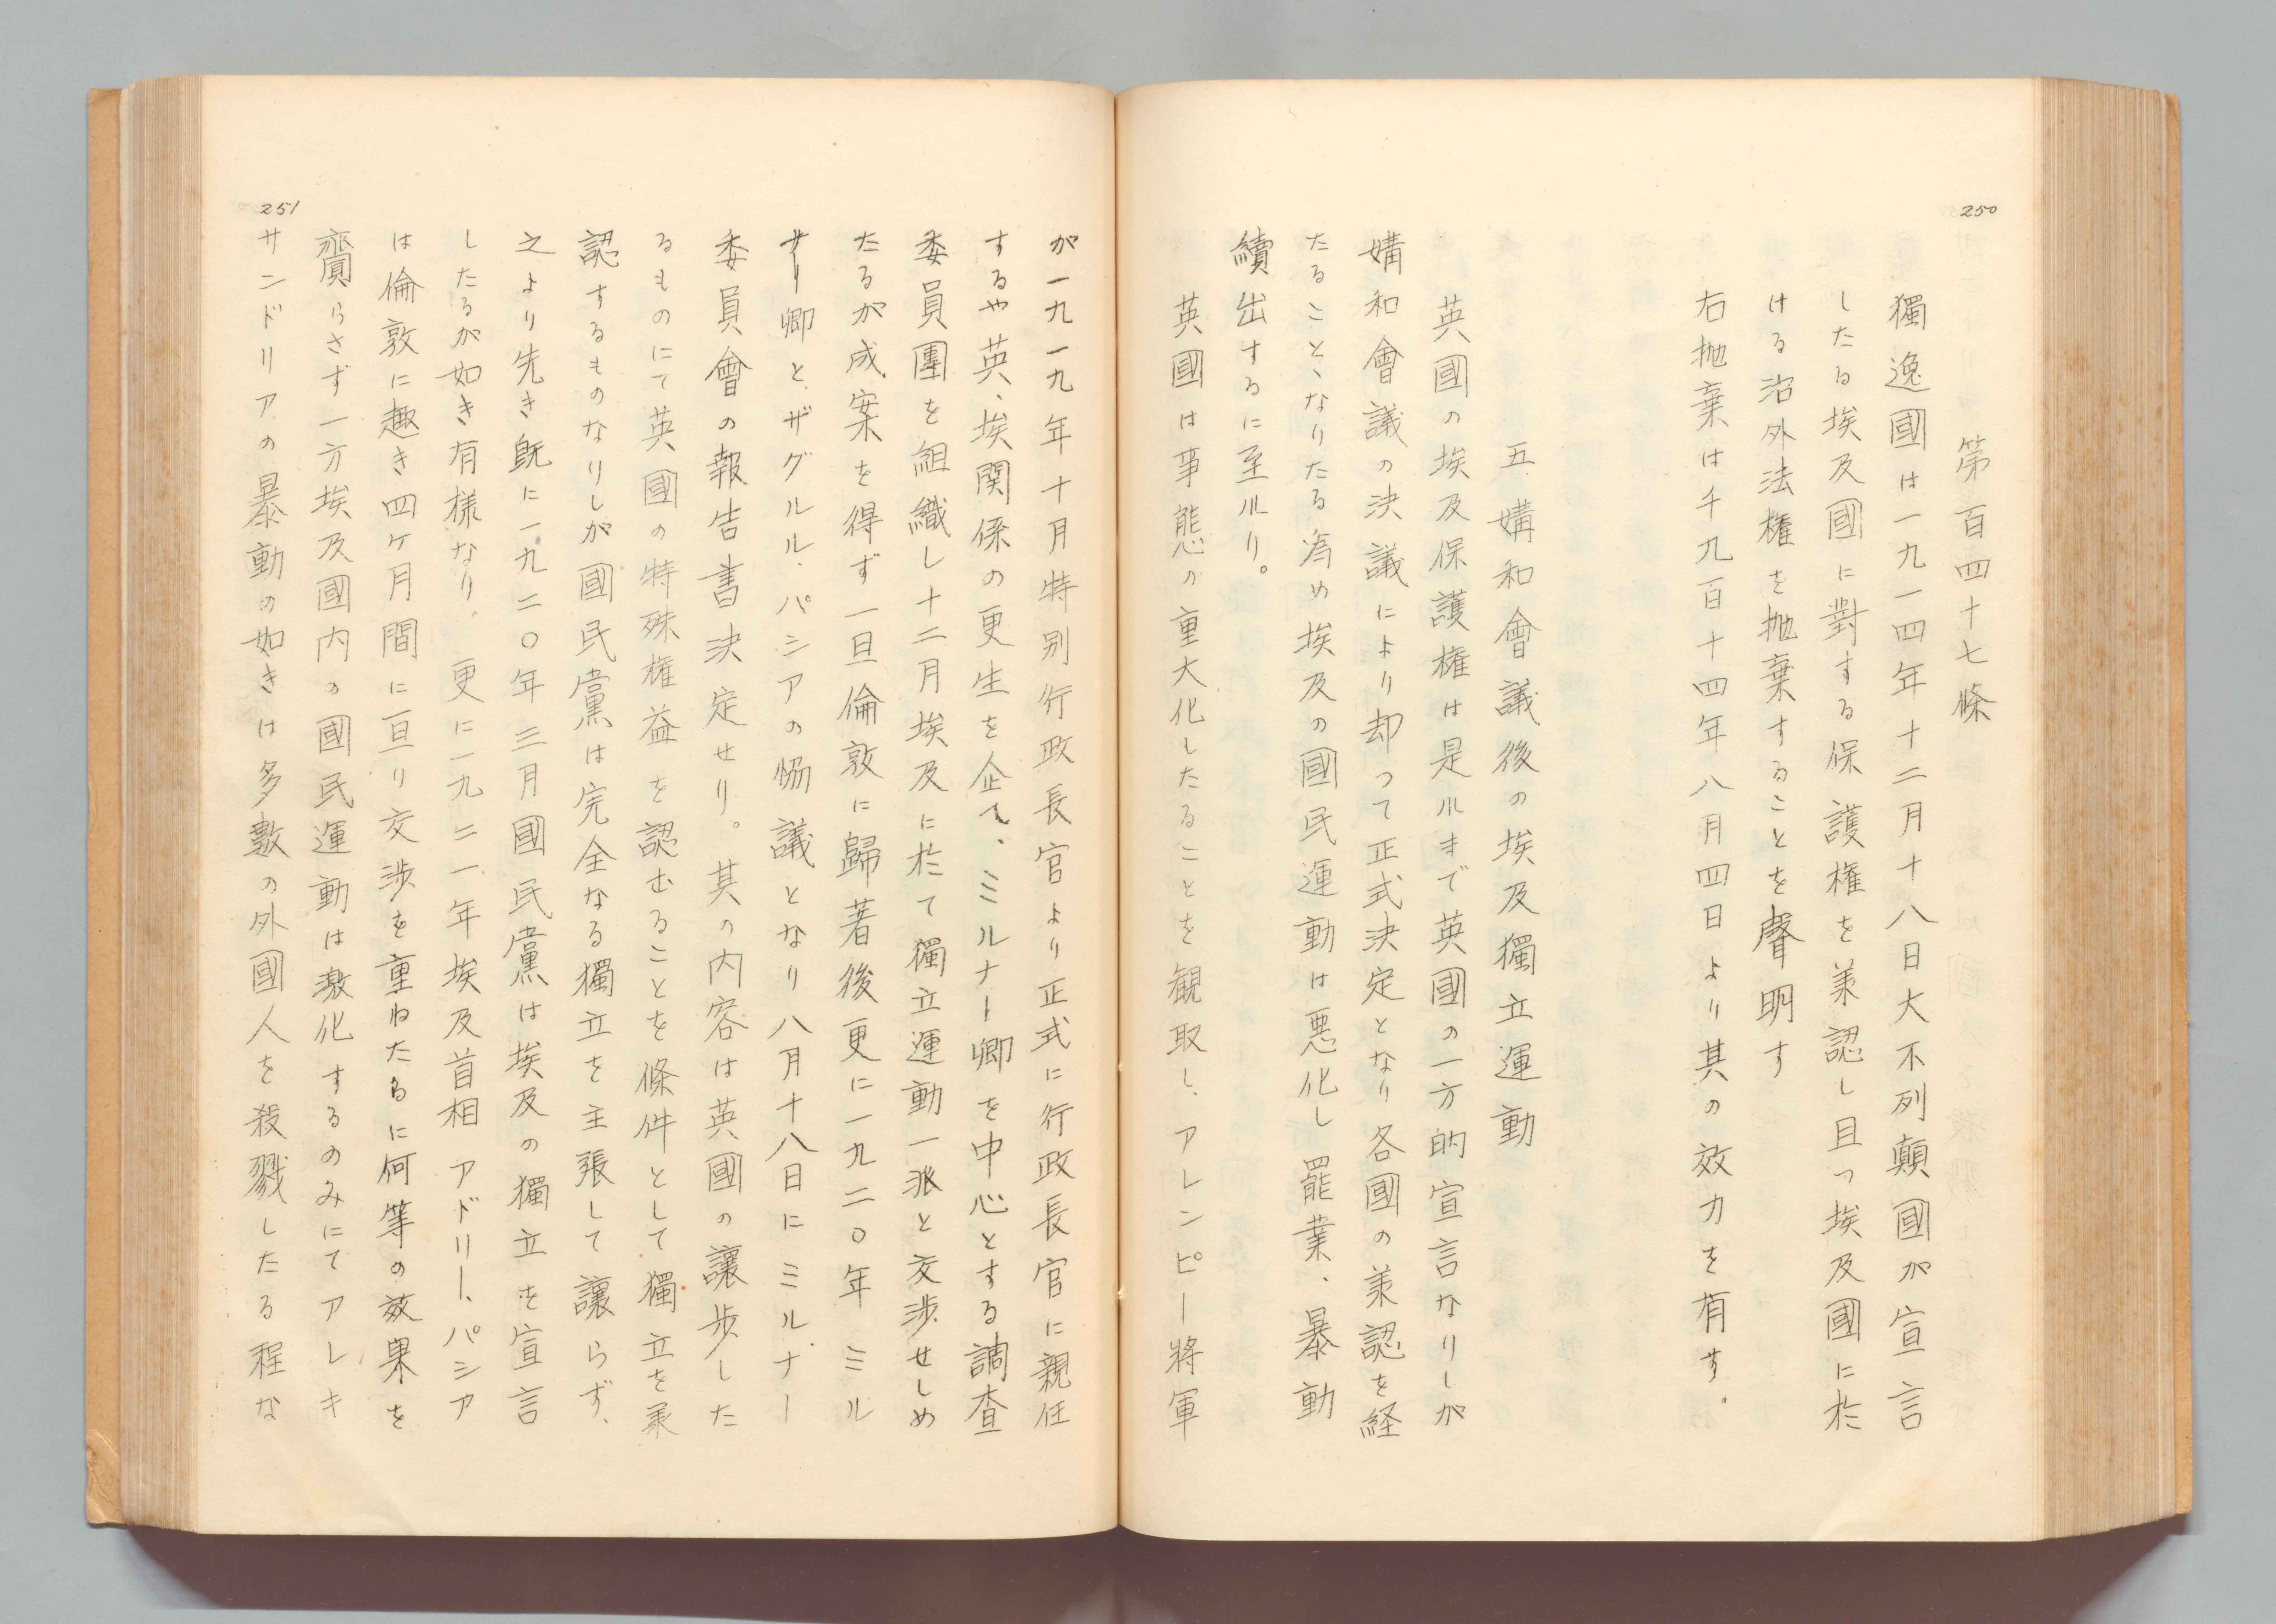 250
第百四十七條
獨逸國は一九一四年十二月十八日大不列顛國が宣言
したる埃及國に對する保護権を承認し且つ埃及國に於
ける治外法権を抛棄することを聲明す
右抛棄は千九百十四年八月四日より其の效力を有す。
五、媾和會議後の埃及獨立運動
英國の埃及保護権は是ルまで英國の一方的宣言なりしが
媾和會議の決議により却つて正式決定となり各國の承認を経
たることゝなりたる為め埃及の國民運動は悪化し罷業、暴動
續出するに至ルり。
英國は事態の重大化したることを観取し、アレンピー將軍
が一九一九年十月特别行政長官より正式に行政長官に親任
するや英、埃関係の更生を企て、ミルナー卿を中心とする調査
委員團を組織し十二月埃及に於て獨立運動一派と交渉せしめ
たるが成案を得ず一旦倫敦に歸著後更に一九二〇年ミル
ナー卿と、ザグルル、パシアの恊議となり八月十八日にミルナー
委員會の報告書決定せり。其の内容は英國の讓歩した
るものにて英國の特殊権益を認むることを條件として獨立を承
認するものなりしが國民黨は完全なる獨立を主張して讓らず、
之より先き既に一九二〇年三月國民黨は埃及の獨立を宣言
したるが如き有様なり。更に一九二一年埃及首相アドリー、パシア
は倫敦に趣き四ケ月間に亘り交渉を重ねたるに何等の效果を
齎らさず一方埃及國内の國民運動は激化するのみにてアレキ
サンドリアの暴動の如きは多數の外國人を殺戮したる程な
251